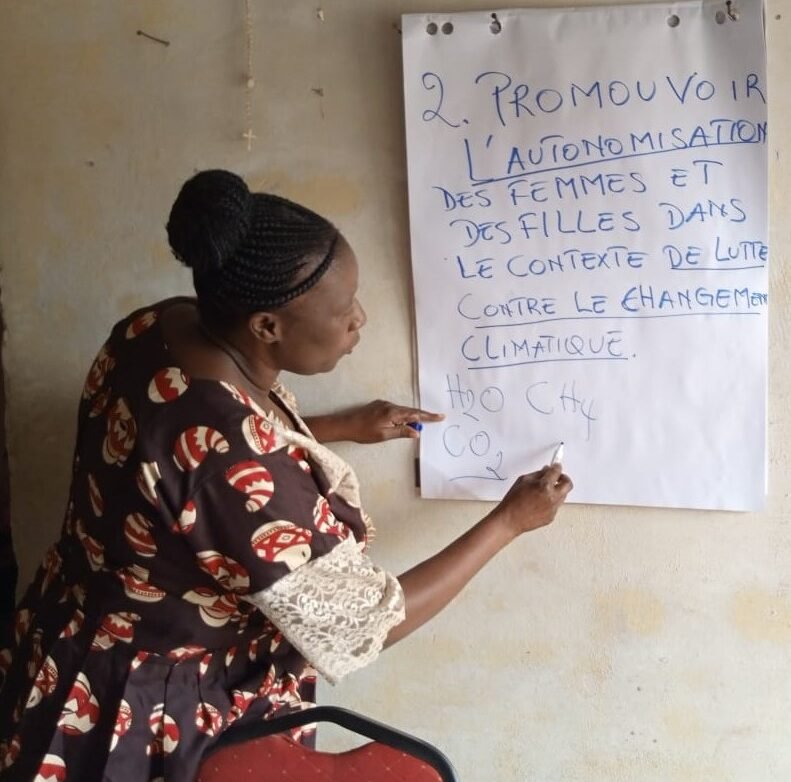 2. PROMOUVOIR
L'AUTONOMISATION
DES FEMMES ET
DES FILLES DANS
LE CONTEXTE DE LUTTE
CONTRE LE CHANGEMEN
CLIMATIQUE.
H2O CH4
CO2